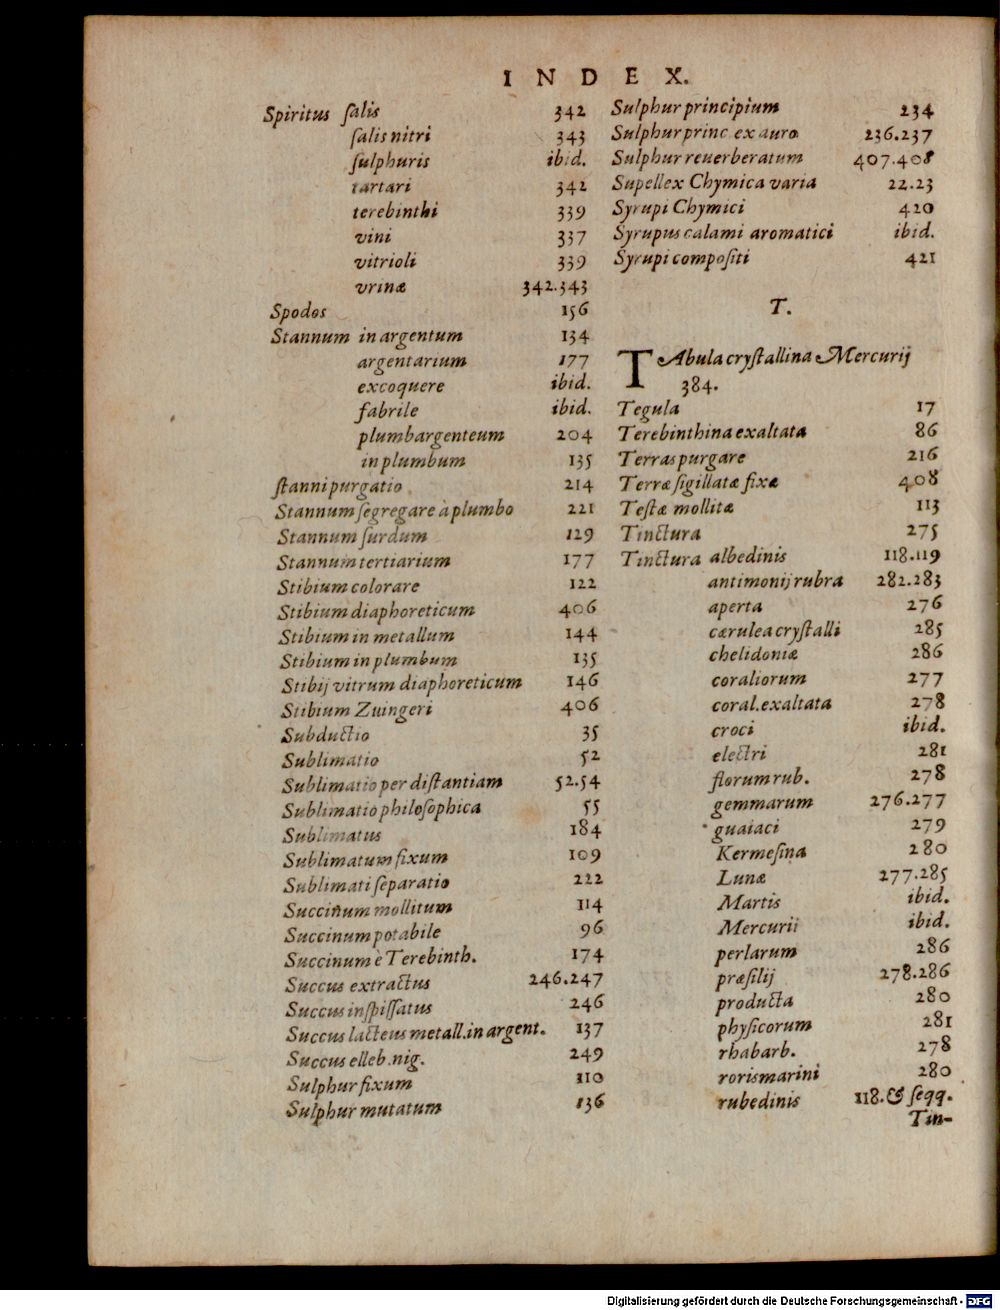 INDEX.
Spiritus ſalis 342
ſalis nitri 343
ſulphuris ibid.
tartari 342
terebinthi 339
vini 337
vitrioli 339
vrinæ 342.343
Spodos 156
Stannum in argentum 134
argentarium 177
excoquere ibid.
fabrile ibid.
plumbargenteum 204
in plumbum 135
ſtanni purgatio 214
Stannum ſegregare à plumbo 221
Stannum ſurdum 129
Stannum tertiarium 177
Stibium colorare 122
Stibium diaphoreticum 406
Stibium in metallum 144
Stibium in plumbum 135
Stibij vitrum diaphoreticum 146
Stibium Zuingeri 406
Subductio 35
Sublimatio 52
Sublimatio per diſtantiam 52.54
Sublimatio philoſophica 55
Sublimatus 184
Sublimatum fixum 109
Sublimati ſeparatio 222
Succin̄um mollitum 114
Succinum potabile 96
Succinum è Terebinth. 174
Succus extractus 246.247
Succus inſpiſſatus 246
Succus lacteus metall.in argent. 137
Succus elleb.nig. 249
Sulphur fixum 110
Sulphur mutatum 136
Sulphur principium 234
Sulphur princ ex auro 236.237
Sulphur reuerberatum 407.408
Supellex Chymica varia 22.23
Syrupi Chymici 420
Syrupus calami aromatici ibid.
Syrupi compoſiti 421
T.
TAbula cryſtallina Mercurij
384.
Tegula 17
Terebinthina exaltata 86
Terras purgare 216
Terræ ſigillatæ fixæ 408
Teſtæ mollitæ 113
Tinctura 275
Tinctura albedinis 118.119
antimonij rubra 282.283
aperta 276
cærulea cryſtalli 285
chelidoniæ 286
coraliorum 277
coral.exaltata 278
croci ibid.
electri 281
florum rub. 278
gemmarum 276.277
guaiaci 279
Kermeſina 280
Lunæ 277.285
Martis ibid.
Mercurii ibid.
perlarum 286
præſilij 278.286
producta 280
phyſicorum 281
rhabarb. 278
rorismarini 280
rubedinis 118.& ſeqq.
Tin-
Digitalisierung gefördert durch die Deutsche Forschungsgemeinschaft - DFG